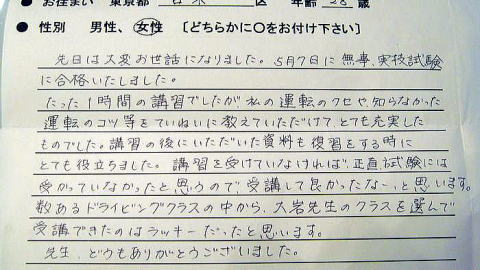 ● お住まい 東京都 区 年齢 28 歳
● 性別 男性、女性 〔どちらかに○をお付け下さい〕
先日は大変お世話になりました。5月7日に無事、実技試験
に合格いたしました。
たった1時間の講習でしたが私の運転のクセや、知らなかった
運転のコツ等をていねいに教えていただけて、とても充実した
ものでした。講習の後にいただいた資料も復習をする時に
とても役立ちました。講習を受けていなければ、正直、試験には
受かっていなかったと思うので、受講して良かったなー、と思います。
数あるドライビングクラスの中から、大岩先生のクラスを選んで
受講できたのはラッキーだったと思います。
先生、どうもありがとうございました。